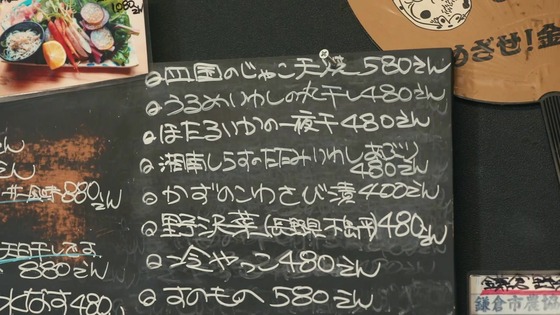 1080えん
めざせ!金
四国のじゃこ天焼 580えん
うるめいわしの丸干し 480えん
ほたるいかの一夜干 480えん
湘南しらすのたたみいわしあぶり
480えん
かずのこわさび漬 400えん
野沢菜(長野県木島平) 480えん
冷やっこ 480えん
すのもの 580えん
えん
えん
880えん
880えん
水なす 480
鎌倉市農協